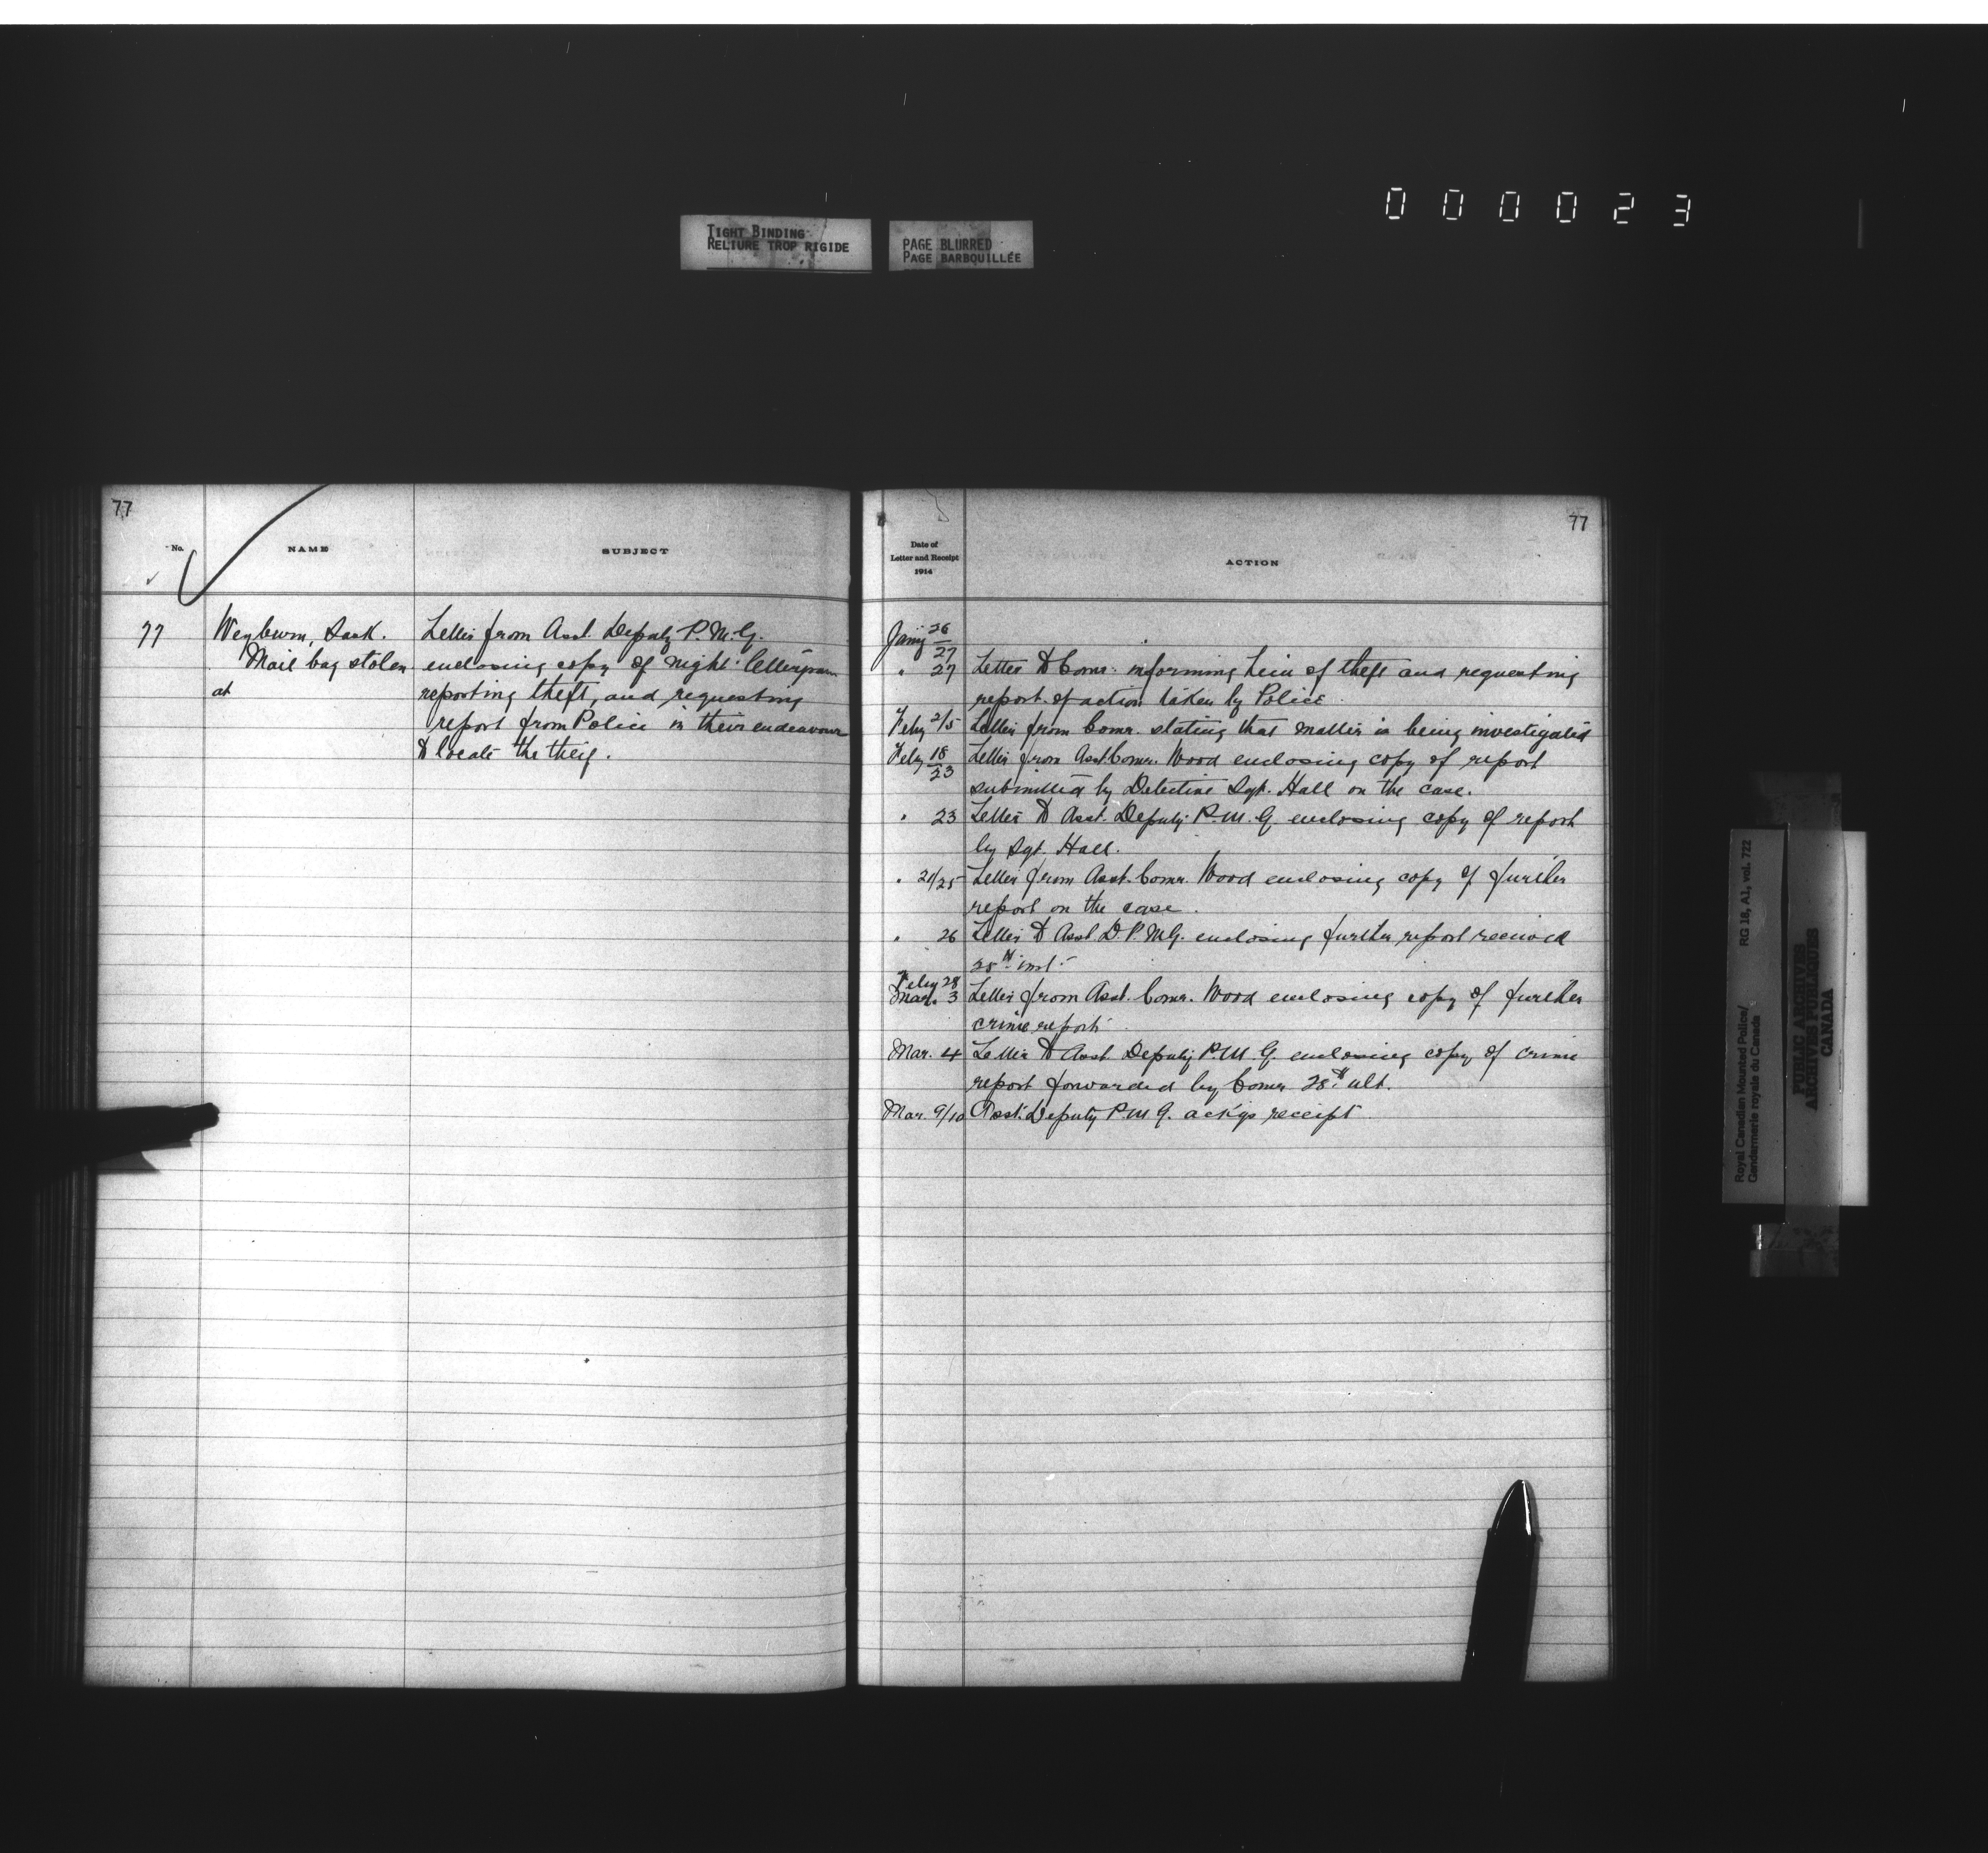 000023
TIGHT BINDING
RELIURE TROP RIGIDE
PAGE BLURRED
PAGE BARBOUILLÉE
77
No.
NAME
SUBJECT
77
Weyburn, Sask.
Mail bag stolen
at
Letter from Asst. Deputy P.M.G.
enclosing copy of night lettergram
reporting theft, and requesting
report from Police in their endeavour
to locate the theif.
77
Date of
Letter and Receipt
1914
ACTION
Jany 26/27
" 27 Letter to Comr. informing him of theft and requesting
report of action taken by Police
Feby 2/5 Letter from Comr. stating that matter is being investigated
Feby 18/23 Letter from Asst Comr. Wood enclosing copy of report
submitted by Detective Sgt. Hall on the case.
" 23 Letter to Asst. Deputy P.M.G. enclosing copy of report
by Sgt. Hall.
" 21/25 Letter from Asst. Comr. Wood enclosing copy of further
report on the case.
" 26 Letter to Asst D.P.M.G. enclosing further report received
25th inst.
Feby 28
Mar. 3 Letter from Asst. Comr. Wood enclosing copy of further
crime report
Mar. 4 Letter to Asst Deputy P.M.G. enclosing copy of crime
report forwarded by Comr 28th ult.
Mar. 9/10 Asst. Deputy P.M.G. ackgs receipt
Royal Canadian Mounted Police/
Gendarmerie royale du Canada
RG 18, A1, vol. 722
PUBLIC ARCHIVES
ARCHIVES PUBLIQUES
CANADA